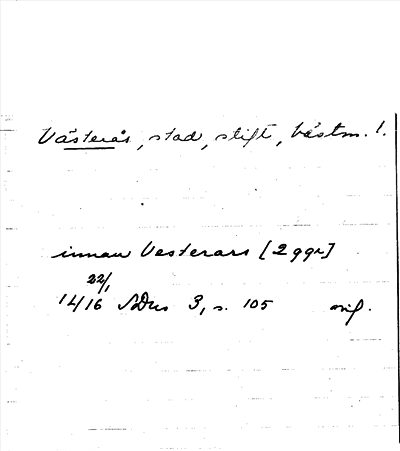 Västerås, stad, stift, Västm. l.
innan Vesterars [2 ggr]
22/1
1416 SDns 3, s. 105 orig.